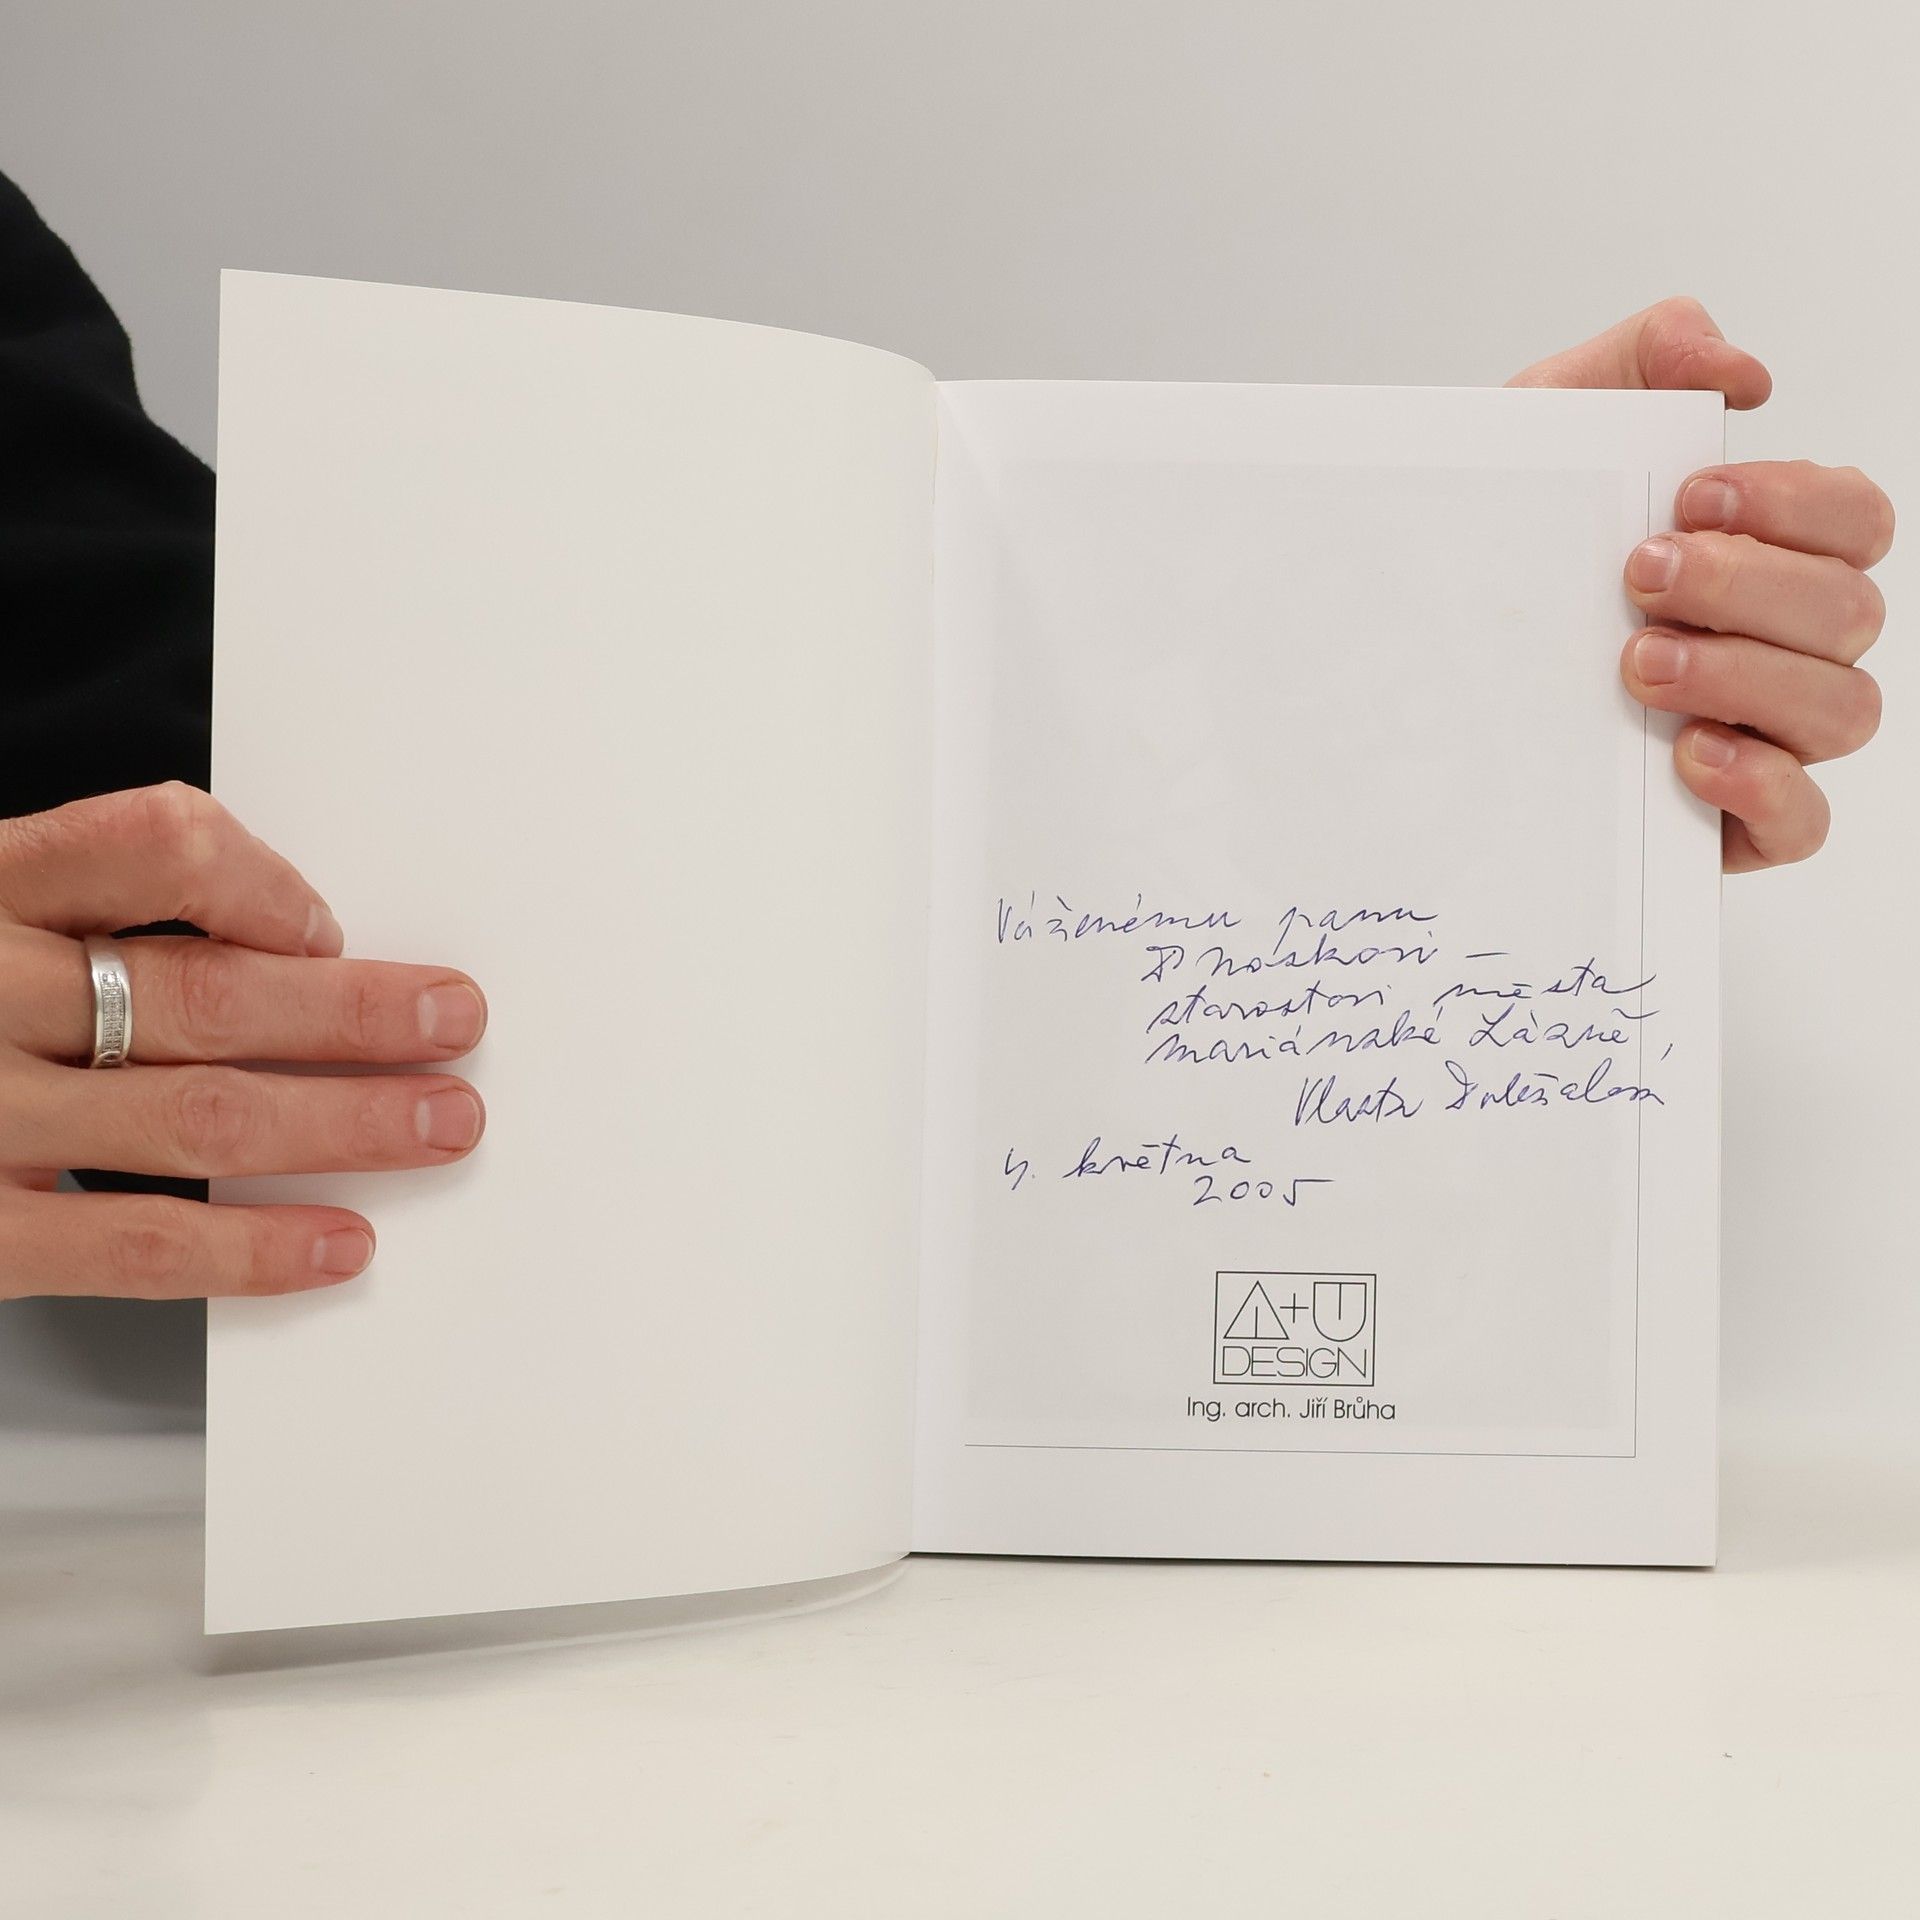 Váženému panu
Noskovi –
starostovi města
mariánské Lázně,
Vlasta Doležalová
4. května
2005
A+U
DESIGN
Ing. arch. Jiří Brůha